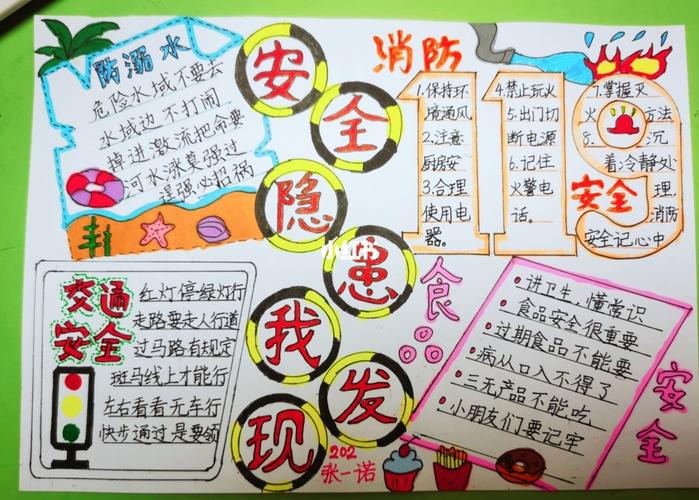 防溺水
危险水域不要去
水域边不打闹
掉进激流把命要
河水涨莫强过
逞强必招祸
安全隐患我发现
消防
119
1.保持环
境通风
2.注意
厨房安
3.合理
使用电
器。
4.禁止玩火
5.出门切
断电源
6.记住
火警电
话。
7.掌握灭
火 方法
8. 沉
着冷静处
理,
消防
安全记心中
安全
交通
安全
红灯停绿灯行
走路要走人行道
过马路有规定
斑马线上才能行
左右看看无车行
快步通过是要领
食品
安全
讲卫生,懂常识
食品安全很重要
过期食品不能要
病从口入不得了
三无产品不能吃
小朋友们要记牢
202
张一诺
小红书